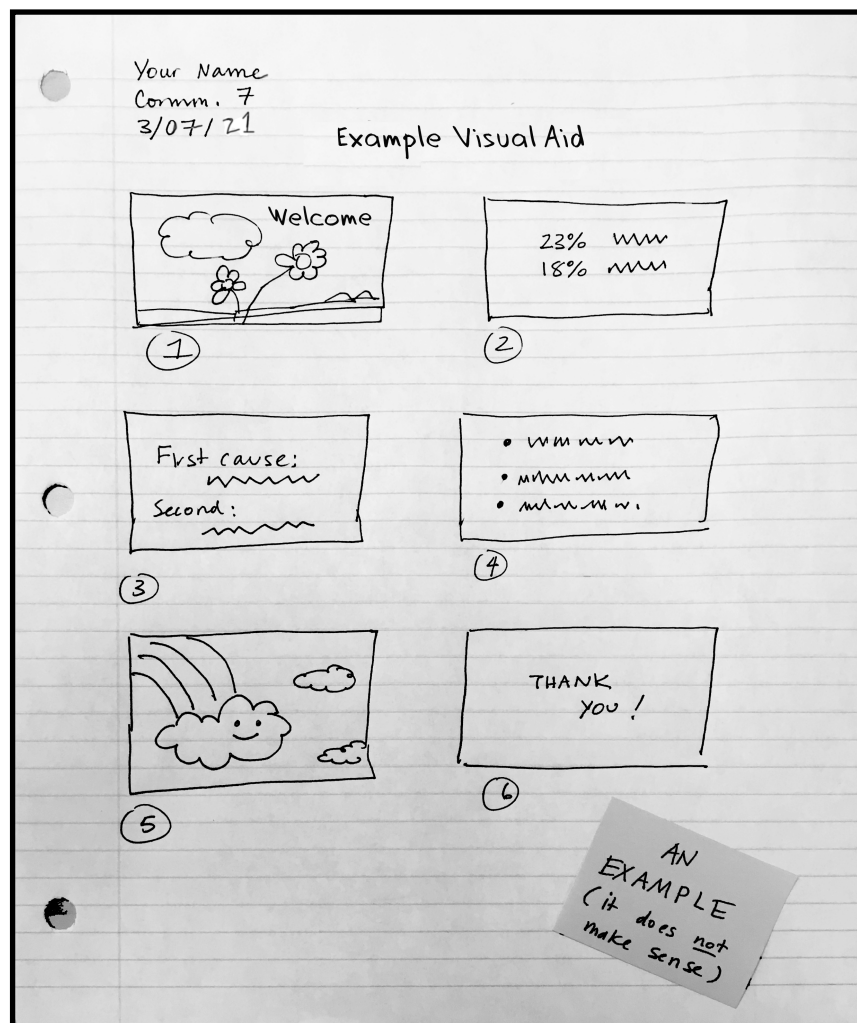 Your Name
Comm. 7
3/07/21
Example Visual Aid
Welcome
1
23%
18%
2
First cause:
Second:
3
4
5
THANK
YOU!
6
AN
EXAMPLE
(it does not
make sense)